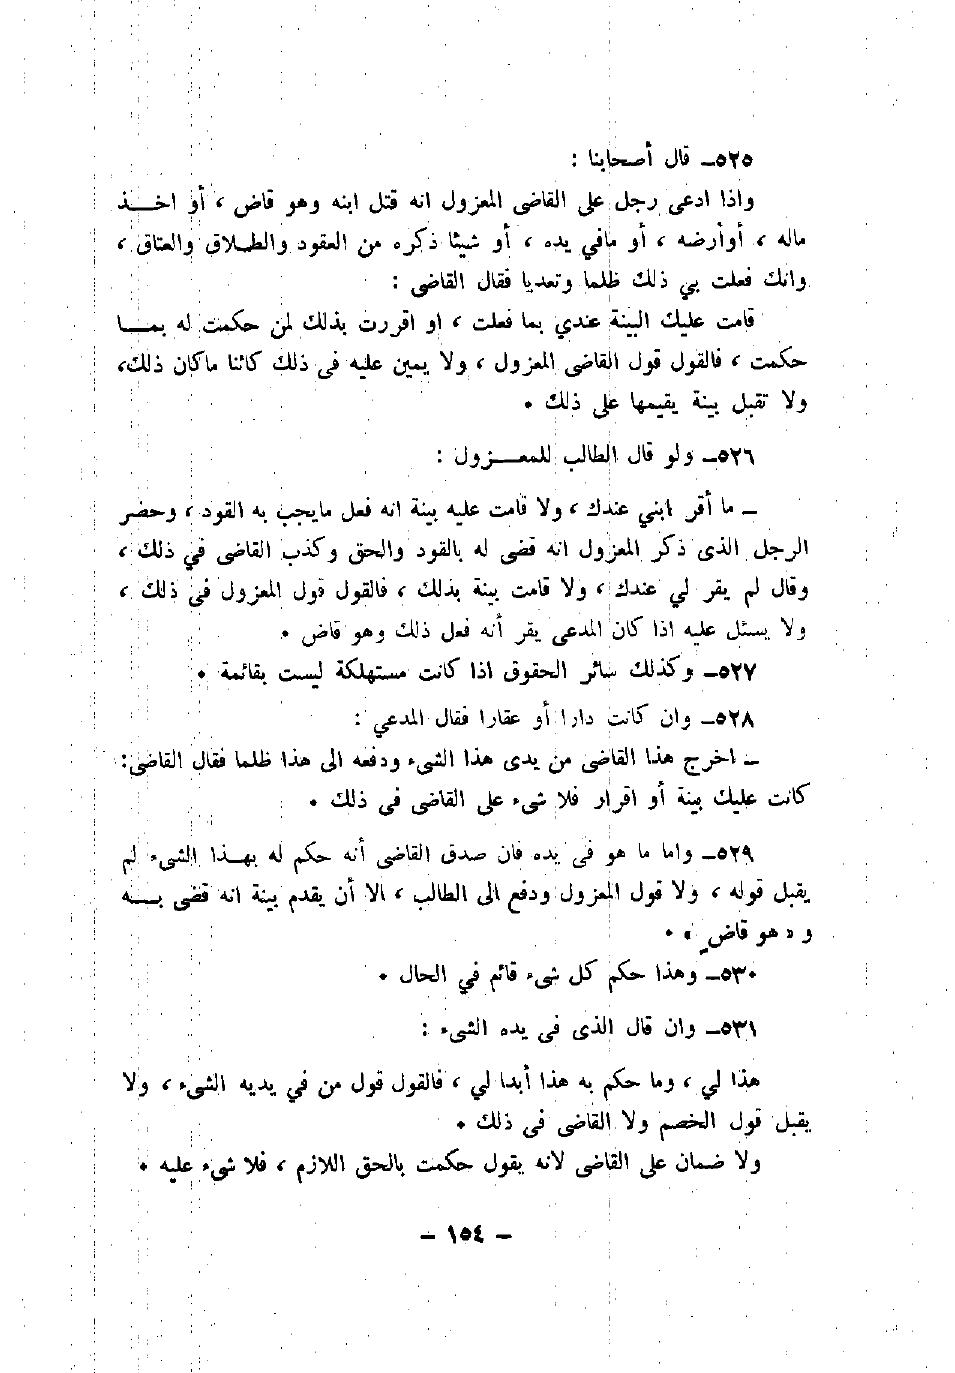 ٥٢٥ـ قال أصحابنا :
واذا ادعى رجل على القاضى المعزول انه قتل ابنه وهو قاض ، أو اخـــذ
ماله ، أوأرضه ، أو مافي يده ، أو شيئا ذكره من العقود والطـلاق والعتاق ،
وانك فعلت بي ذلك ظلما وتعديا فقال القاضى :
قامت عليك البينة عندي بما فعلت ، او اقررت بذلك لمن حكمت له بمـــا
حكمت ، فالقول قول القاضى المعزول ، ولا يمين عليه فى ذلك كائنا ماكان ذلك،
ولا تقبل بينة يقيمها على ذلك .
٥٢٦ـ ولو قال الطالب للمعــزول :
ـ ما أقر ابني عندك ، ولا قامت عليه بينة انه فعل مايجب به القود ، وحضر
الرجل الذى ذكر المعزول انه قضى له بالقود والحق وكذب القاضى في ذلك ،
وقال لم يقر لي عندك ، ولا قامت بينة بذلك ، فالقول قول المعزول فى ذلك ،
ولا يسئل عليه اذا كان المدعى يقر أنه فعل ذلك وهو قاض .
٥٢٧ـ وكذلك سائر الحقوق اذا كانت مستهلكة ليست بقائمة .
٥٢٨ـ وان كانت دارا أو عقارا فقال المدعي :
ـ اخرج هذا القاضى من يدى هذا الشىء ودفعه الى هذا ظلما فقال القاضى:
كانت عليك بينة أو اقرار فلا شىء على القاضى فى ذلك .
٥٢٩ـ واما ما هو فى يده فان صدق القاضى أنه حكم له بهـذا الشىء لم
يقبل قوله ، ولا قول المعزول ودفع الى الطالب ، الا أن يقدم بينة انه قضى بـــه
و « هو قاضٍ » .
٥٣٠ـ وهذا حكم كل شىء قائم في الحال .
٥٣١ـ وان قال الذى فى يده الشىء :
هذا لي ، وما حكم به هذا أبدا لي ، فالقول قول من في يديه الشىء ، ولا
يقبل قول الخصم ولا القاضى فى ذلك .
ولا ضمان على القاضى لانه يقول حكمت بالحق اللازم ، فلا شىء عليه .
ـ ١٥٤ ـ